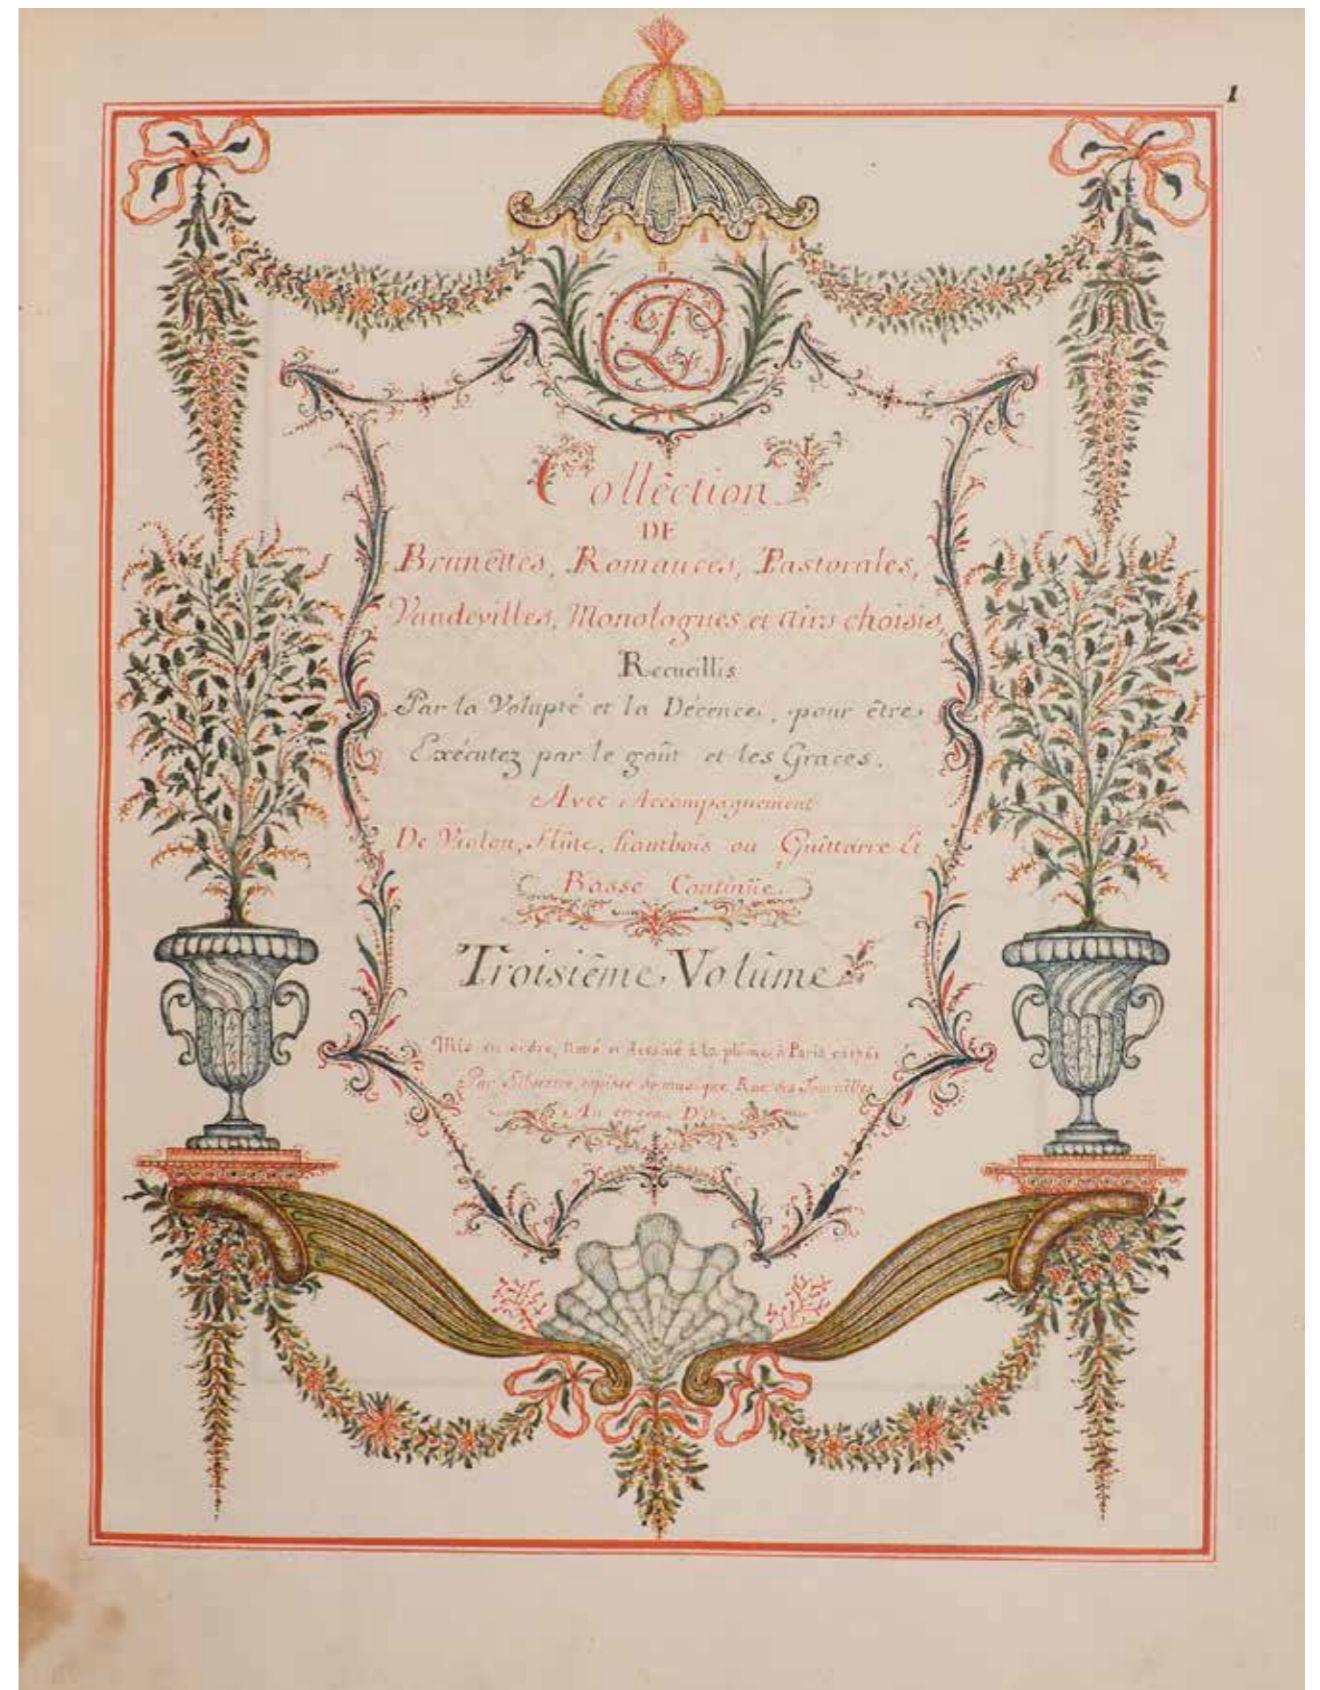 1
Collêction
DE
Brunêttes, Romances, Pastorales,
Vaudevilles, Monologues et Airs choisis,
Recueillis
Par la Volupté et la Décence, pour être
Exécutez par le goût et les Graces.
Avec Accompagnement
De Violon, Flûte, hautbois ou Guittarre et
Basse Continüe.
Troisiême Volûme
Mis en ordre, Noté et dessiné à la plume, à Paris en 1761
Par copiste de musique, Rue des Tournelles
Au D'or.